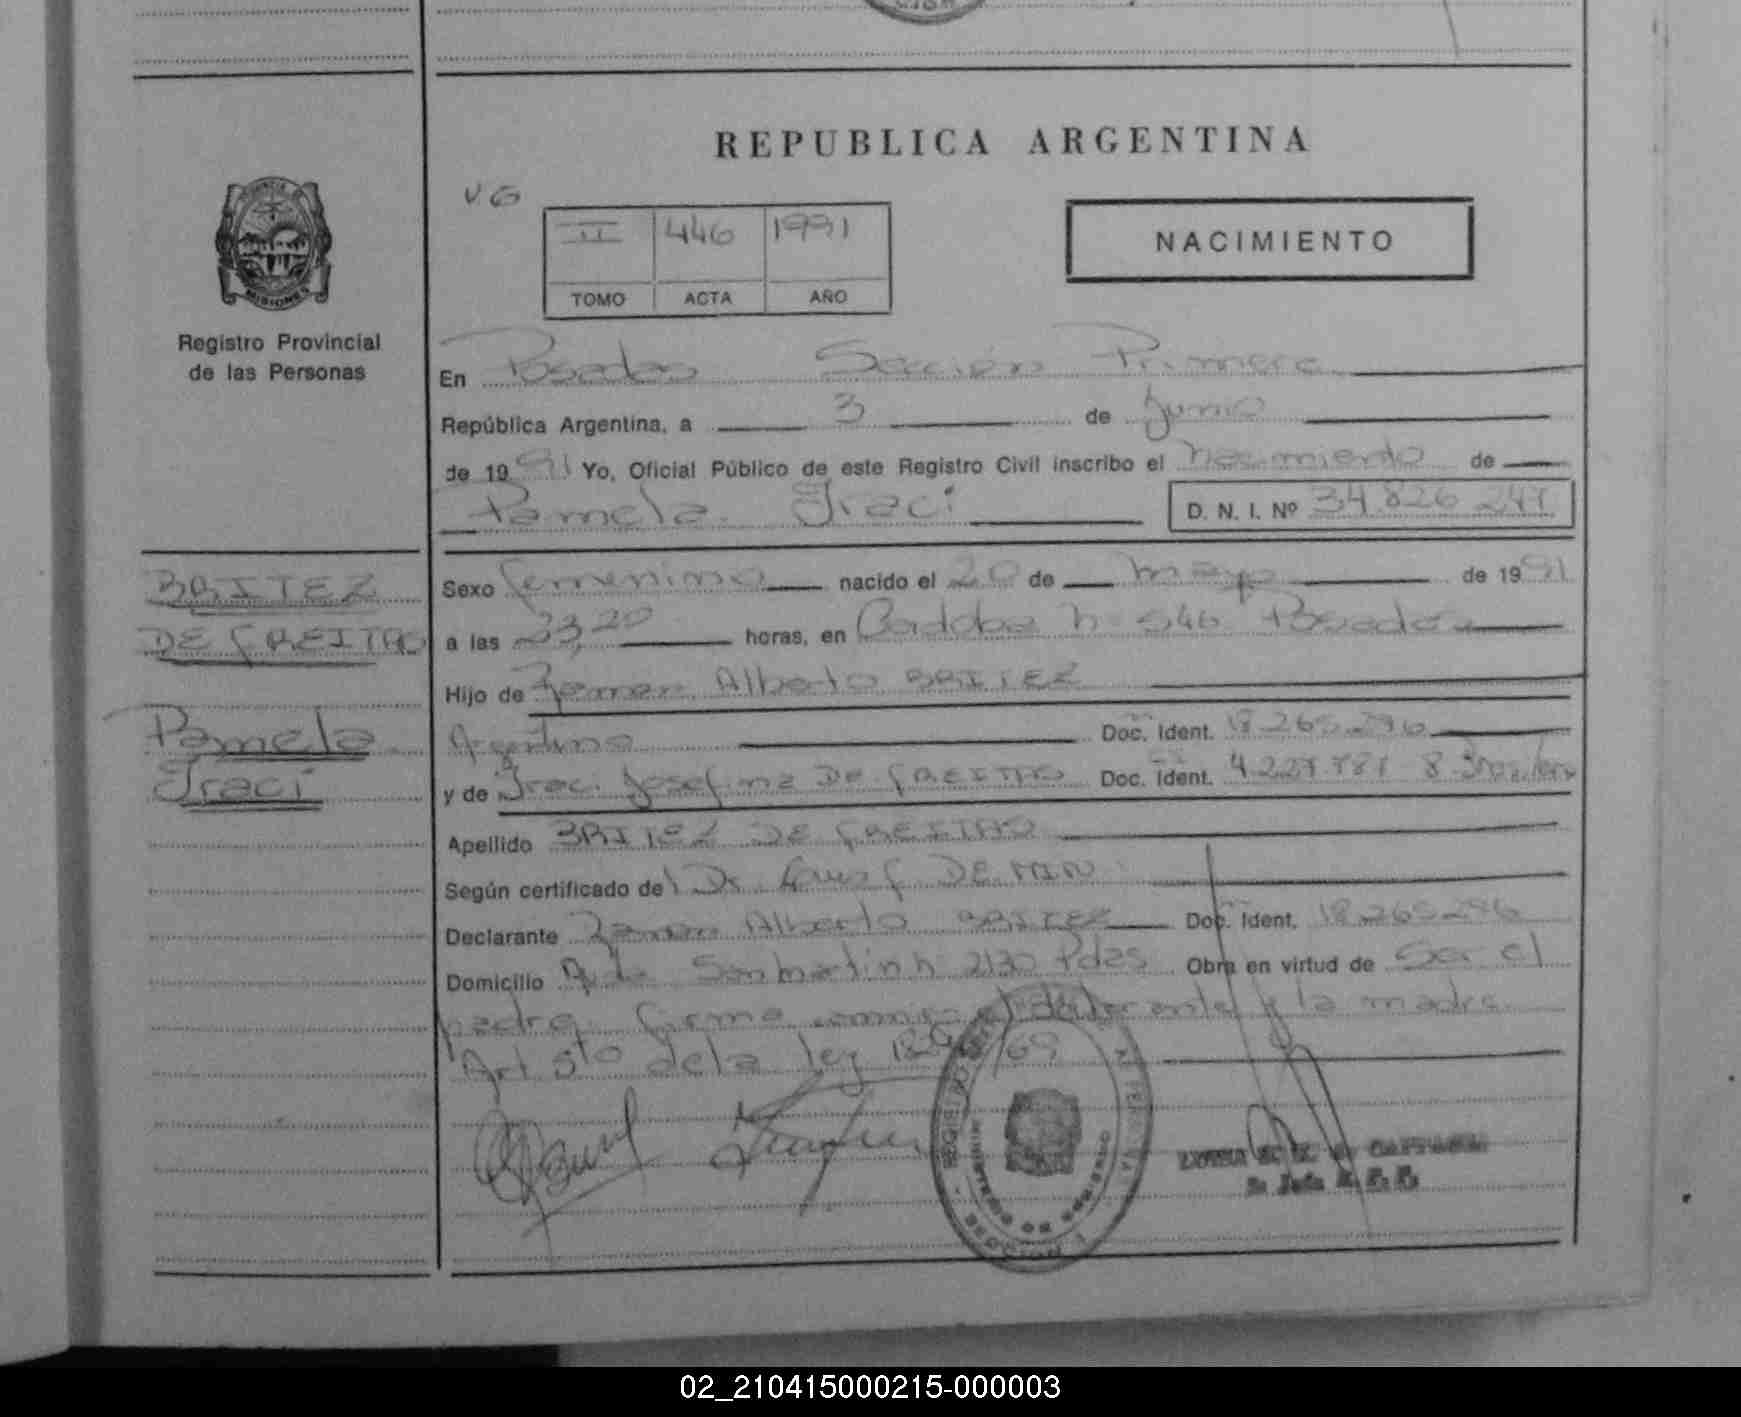 REPUBLICA ARGENTINA
V. G
II 446 1991
TOMO ACTA AÑO
NACIMIENTO
MISIONES
Registro Provincial
de las Personas
En Posadas Sección Primera
República Argentina, a 3 de Junio
de 1991 Yo, Oficial Público de este Registro Civil inscribo el nacimiento de
Pamela Iraci
D. N. I. Nº 34.826 247
BRITEZ
DE FREITAS
Pamela
Iraci
Sexo femenino nacido el 20 de mayo de 1991
a las 23,20 horas, en Cordoba n 546 Posadas
Hijo de Ramon Alberto BRITEZ
Argentino Doc. Ident. 18.265.296
y de Iraci Josefina DE FREITAS Doc. Ident. 8
Apellido BRITEZ DE FREITAS
Según certificado del Dr. Luis F DE MIN
Declarante Ramon Alberto BRITEZ Doc. Ident. 18.265.296
Domicilio Avda San martin n 2130 Pdas Obra en virtud de Ser el
padre. firma conmigo el declarante y la madre
Art 5to de la ley 69
SECCION 1
02_210415000215-000003